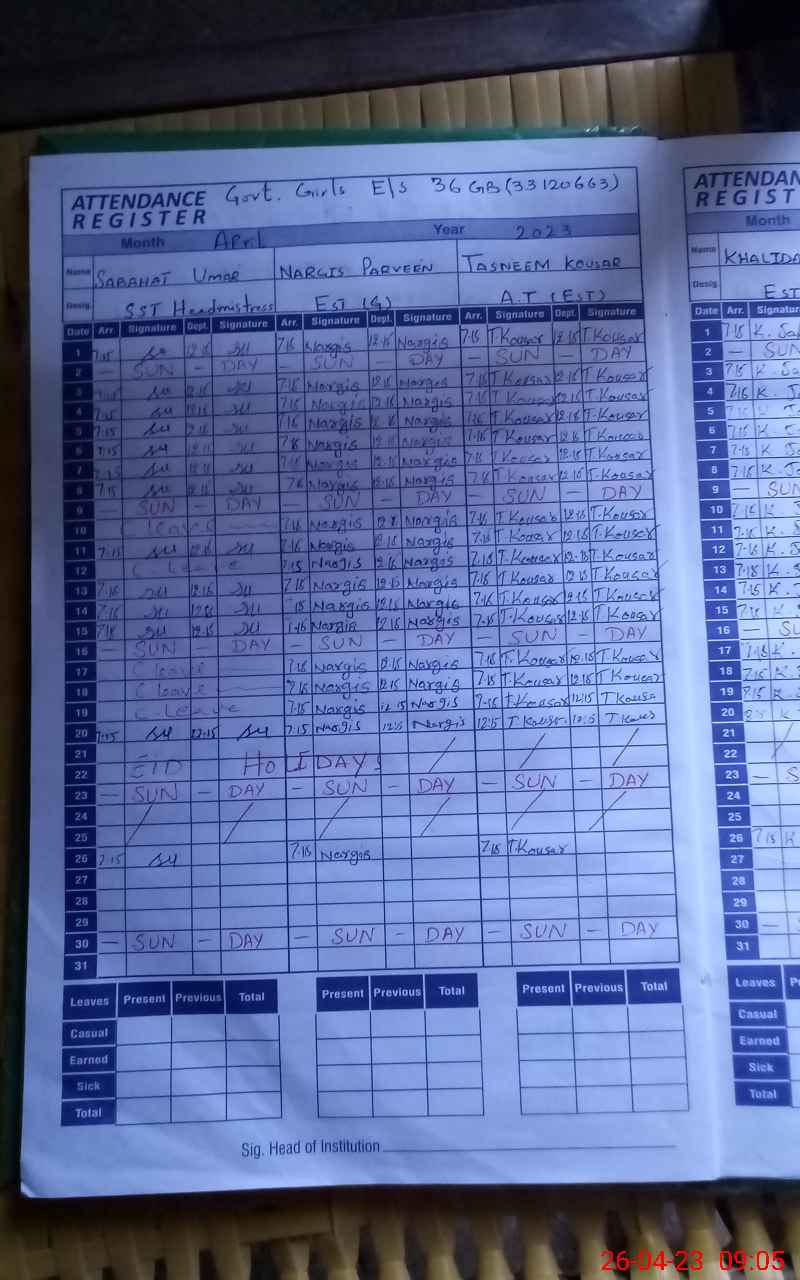 ATTENDANCE REGISTER Govt. Girls E/s 36 GB (33120663)
Month April Year 2023
Name SABAHAT UMAR NARGIS PARVEEN TASNEEM KOUSAR
Desig. SST Headmistress EST (G) A.T (EST)
Date Arr. Signature Dept. Signature Arr. Signature Dept. Signature Arr. Signature Dept. Signature
1 7:15 12:15 7:15 Nargis 12:15 Nargis 7:15 T Kousar 12:15 T Kousar
2 — SUN — DAY — SUN — DAY — SUN — DAY
3 7:15 12:15 7:15 Nargis 12:15 Nargis 7:15 T Kousar 12:15 T Kousar
4 7:15 12:15 7:15 Nargis 12:15 Nargis 7:15 T Kousar 12:15 T Kousar
5 7:15 12:15 7:15 Nargis 12:15 Nargis 7:15 T Kousar 12:15 T. Kousar
6 7:15 12:15 Nargis 12:15 Nargis 7:15 T Kousar 12:15 T Kousar
7 7:15 12:15 7:15 Nargis 12:15 Nargis 7:15 T Kousar 12:15 T. Kousar
8 7:15 Nargis 12:15 Nargis T Kousar 12:15 T. Kousar
9 — SUN — DAY — SUN — DAY — SUN — DAY
10 C leave 7:15 Nargis Nargis 7:15 T Kousar 12:15 T. Kousar
11 7:15 12:15 7:15 Nargis 12:15 Nargis 7:15 T Kousar 12:15 T. Kousar
12 C. Leave 7:15 Nargis 12:15 Nargis 7:15 T. Kousar 12:15 T. Kousar
13 7:15 12:15 7:15 Nargis 12:15 Nargis 7:15 T Kousar 12:15 T Kousar
14 7:15 12:15 Nargis 12:15 Nargis 7:15 T Kousar 12:15 T. Kousar
15 7:15 12:15 Nargis 12:15 Nargis 7:15 T. Kousar 12:15 T Kousar
16 — SUN — DAY — SUN — DAY — SUN — DAY
17 C leave 7:15 Nargis 12:15 Nargis 7:15 T. Kousar 12:15 T. Kousar
18 C leave 7:15 Nargis 12:15 Nargis 7:15 T. Kousar 12:15 T Kousar
19 C. leave 7:15 Nargis 12:15 Nargis 7:15 T. Kousar 12:15 T Kousa
20 7:15 12:15 7:15 Nargis 12:15 Nargis 12:15 T Kousar 12:15
21
22 EID HolIDAYS
23 — SUN — DAY — SUN — DAY — SUN — DAY
24
25
26 7:15 7:15 Nargis 7:15 T. Kousar
27
28
29
30 — SUN — DAY — SUN — DAY — SUN — DAY
31
Leaves Present Previous Total Present Previous Total Present Previous Total
Casual
Earned
Sick
Total
Sig. Head of Institution
Month
Name KHALIDA
Desig. EST
Date Arr.
1 7:15 K.
2 — SUN
3 7:15 K.
4 7:15 K.
5 K.
6 7:15 K.
7 7:15 K
8 7:15 K.
9 — SUN
10 7:15 K
11 7:15 K.
12 7:15 K.
13 7:15 K.
14 7:15 K.
15 7:15 K.
16 —
17 K.
18 7:15 K.
19 K.
20 K.
21
22
23 —
24
25
26 7:15 K
27
28
29
30 —
31
Leaves
Casual
Earned
Sick
Total
26-04-23 09:05